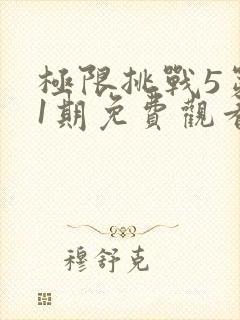 極限挑戰5
1期免費觀看
穆舒克